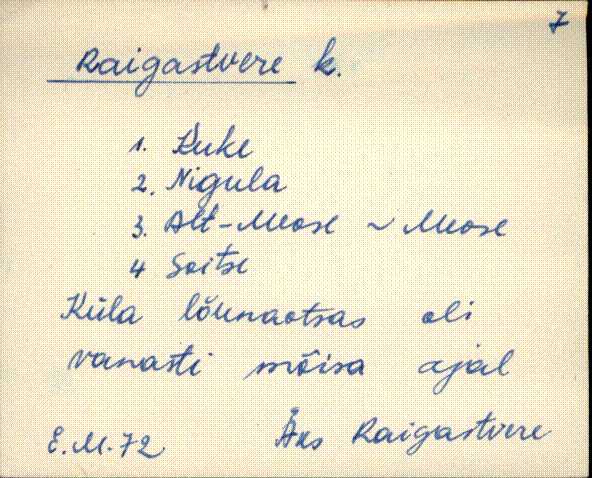 7
Raigastvere k.
1. Kuke
2. Nigula
3. Alt-Mose ~ Mose
4 Soitse
Küla lõunaotsas oli
vanasti mõisa ajal
E.M.72 Äks Raigastvere